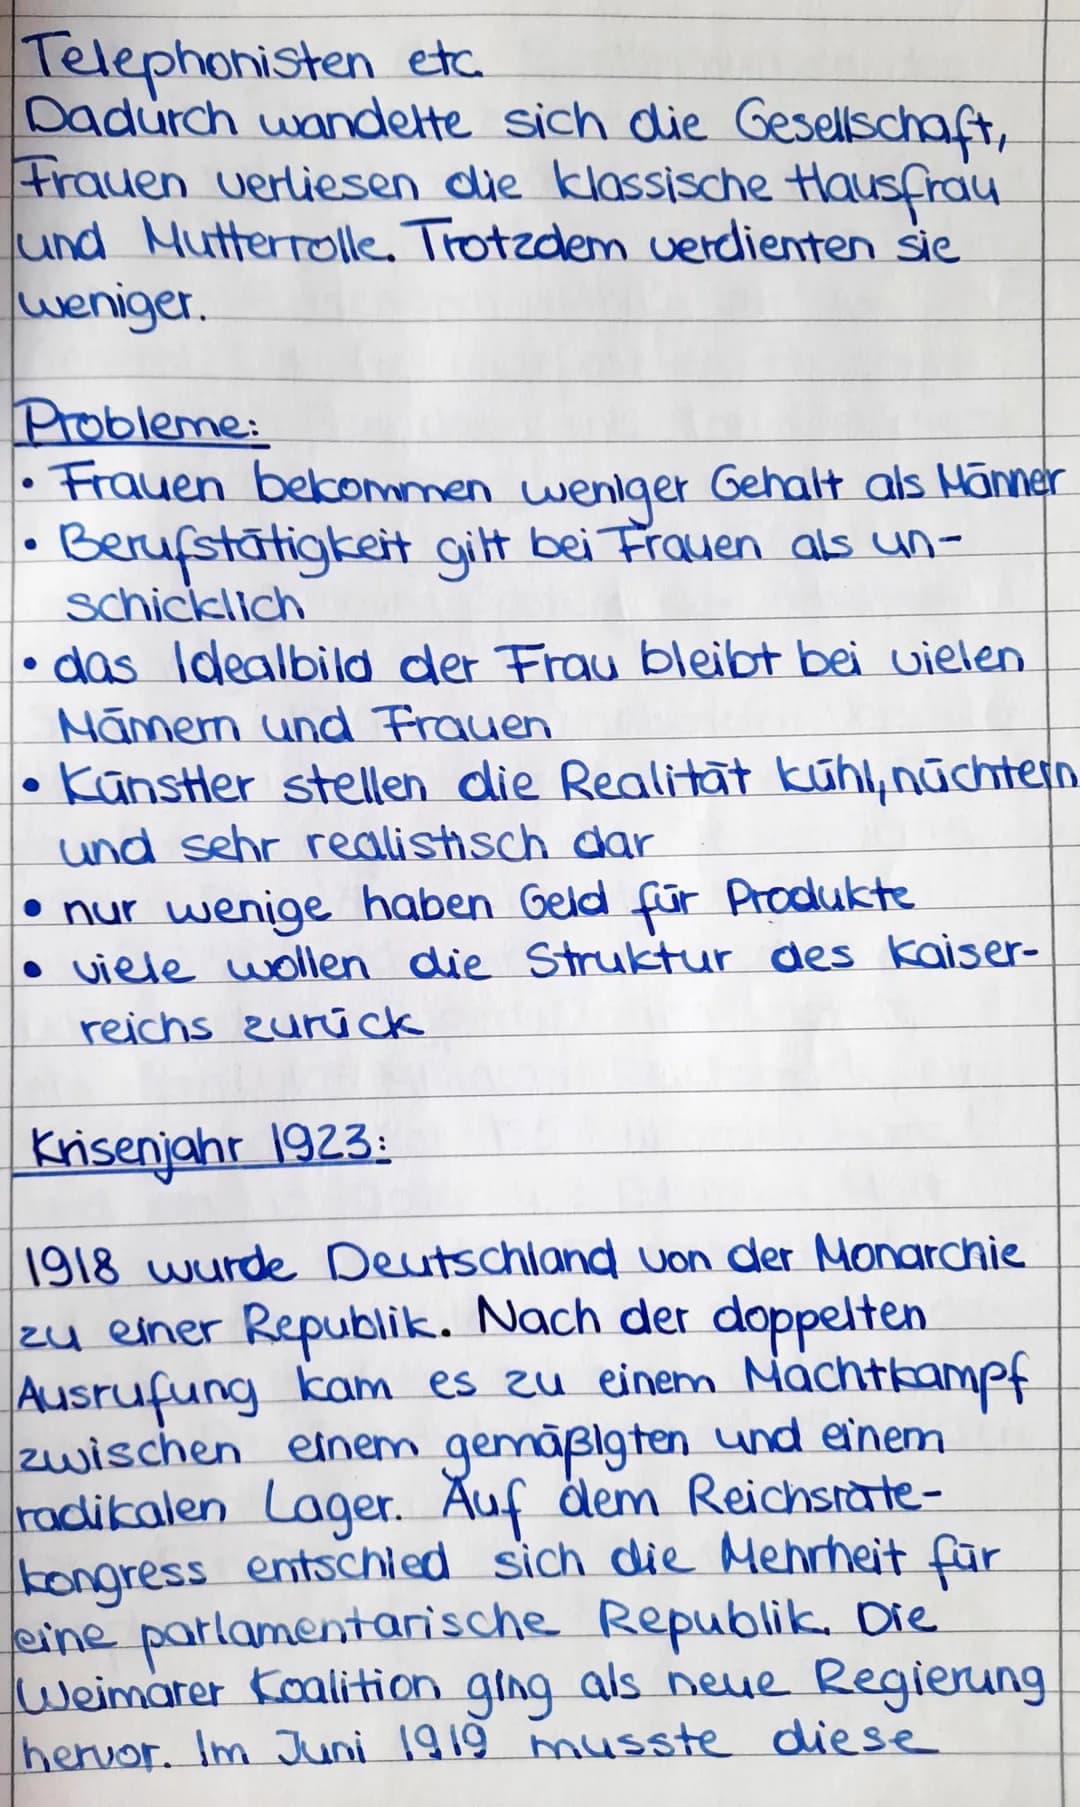 Telephonisten etc.
Dadurch wandelte sich die Gesellschaft,
Frauen verliesen die klassische Hausfrau
und Mutterrolle. Trotzdem verdienten sie
weniger.
Probleme:
• Frauen bekommen weniger Gehalt als Männer
• Berufstätigkeit gilt bei Frauen als un-
schicklich
• das Idealbild der Frau bleibt bei vielen
Männern und Frauen
• Künstler stellen die Realität kühl, nüchtern
und sehr realistisch dar
• nur wenige haben Geld für Produkte
• viele wollen die Struktur des Kaiser-
reichs zurück
Krisenjahr 1923:
1918 wurde Deutschland von der Monarchie
zu einer Republik. Nach der doppelten
Ausrufung kam es zu einem Machtkampf
zwischen einem gemäßigten und einem
radikalen Lager. Auf dem Reichsräte-
kongress entschied sich die Mehrheit für
eine parlamentarische Republik. Die
Weimarer Koalition ging als neue Regierung
hervor. Im Juni 1919 musste diese